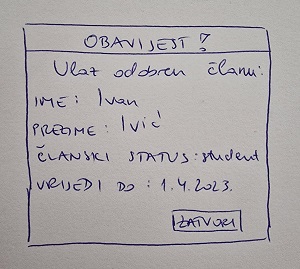 OBAVIJEST!
Ulaz odobren članu:
IME: Ivan
PREZIME: Ivić
ČLANSKI STATUS: student
VRIJEDI DO: 1.4.2023.
ZATVORI